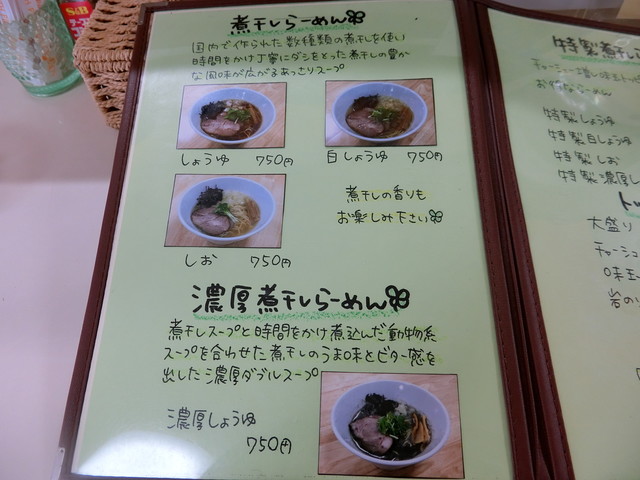 煮干しらーめん
国内で作られた数種類の煮干しを使い
時間をかけ丁寧にダシをとった煮干しの豊か
な風味が広がるあっさりスープ
しょうゆ 750円
白しょうゆ 750円
しお 750円
煮干しの香りも
お楽しみ下さい
濃厚煮干しらーめん
煮干しスープと時間をかけ煮込んだ動物系
スープを合わせた煮干しのうま味とビター感を
出した濃厚ダブルスープ
濃厚しょうゆ
750円
特製煮干し
チャーシュー増し味玉
らーめん
特製しょうゆ
特製白しょうゆ
特製しお
特製濃厚し
大盛り
チャーシュー
味玉
岩の
S&B